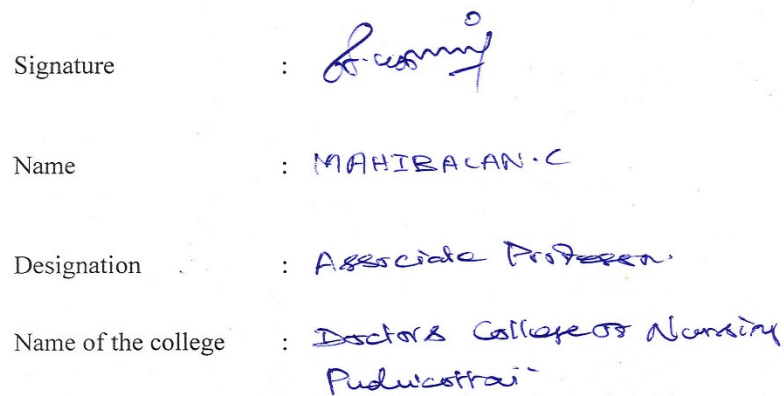 Signature :
Name : MAHIBALAN.C
Designation : Associate Professor.
Name of the college : Doctors College of Nursing
Pudukottai